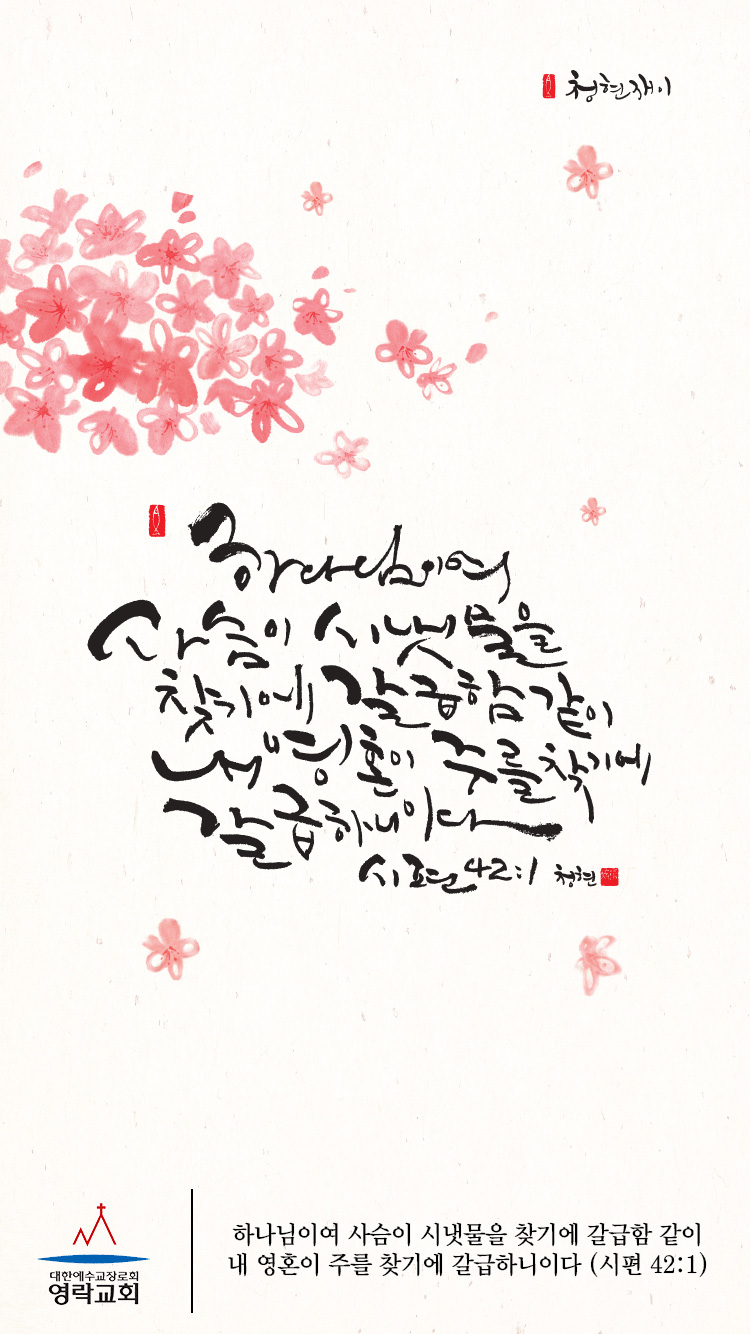 청현재이
하나님이여
사슴이 시냇물을
찾기에 갈급함 같이
내 영혼이 주를 찾기에
갈급하니이다
시편 42:1 청현
대한예수교장로회
영락교회
하나님이여 사슴이 시냇물을 찾기에 갈급함 같이
내 영혼이 주를 찾기에 갈급하니이다 (시편 42:1)